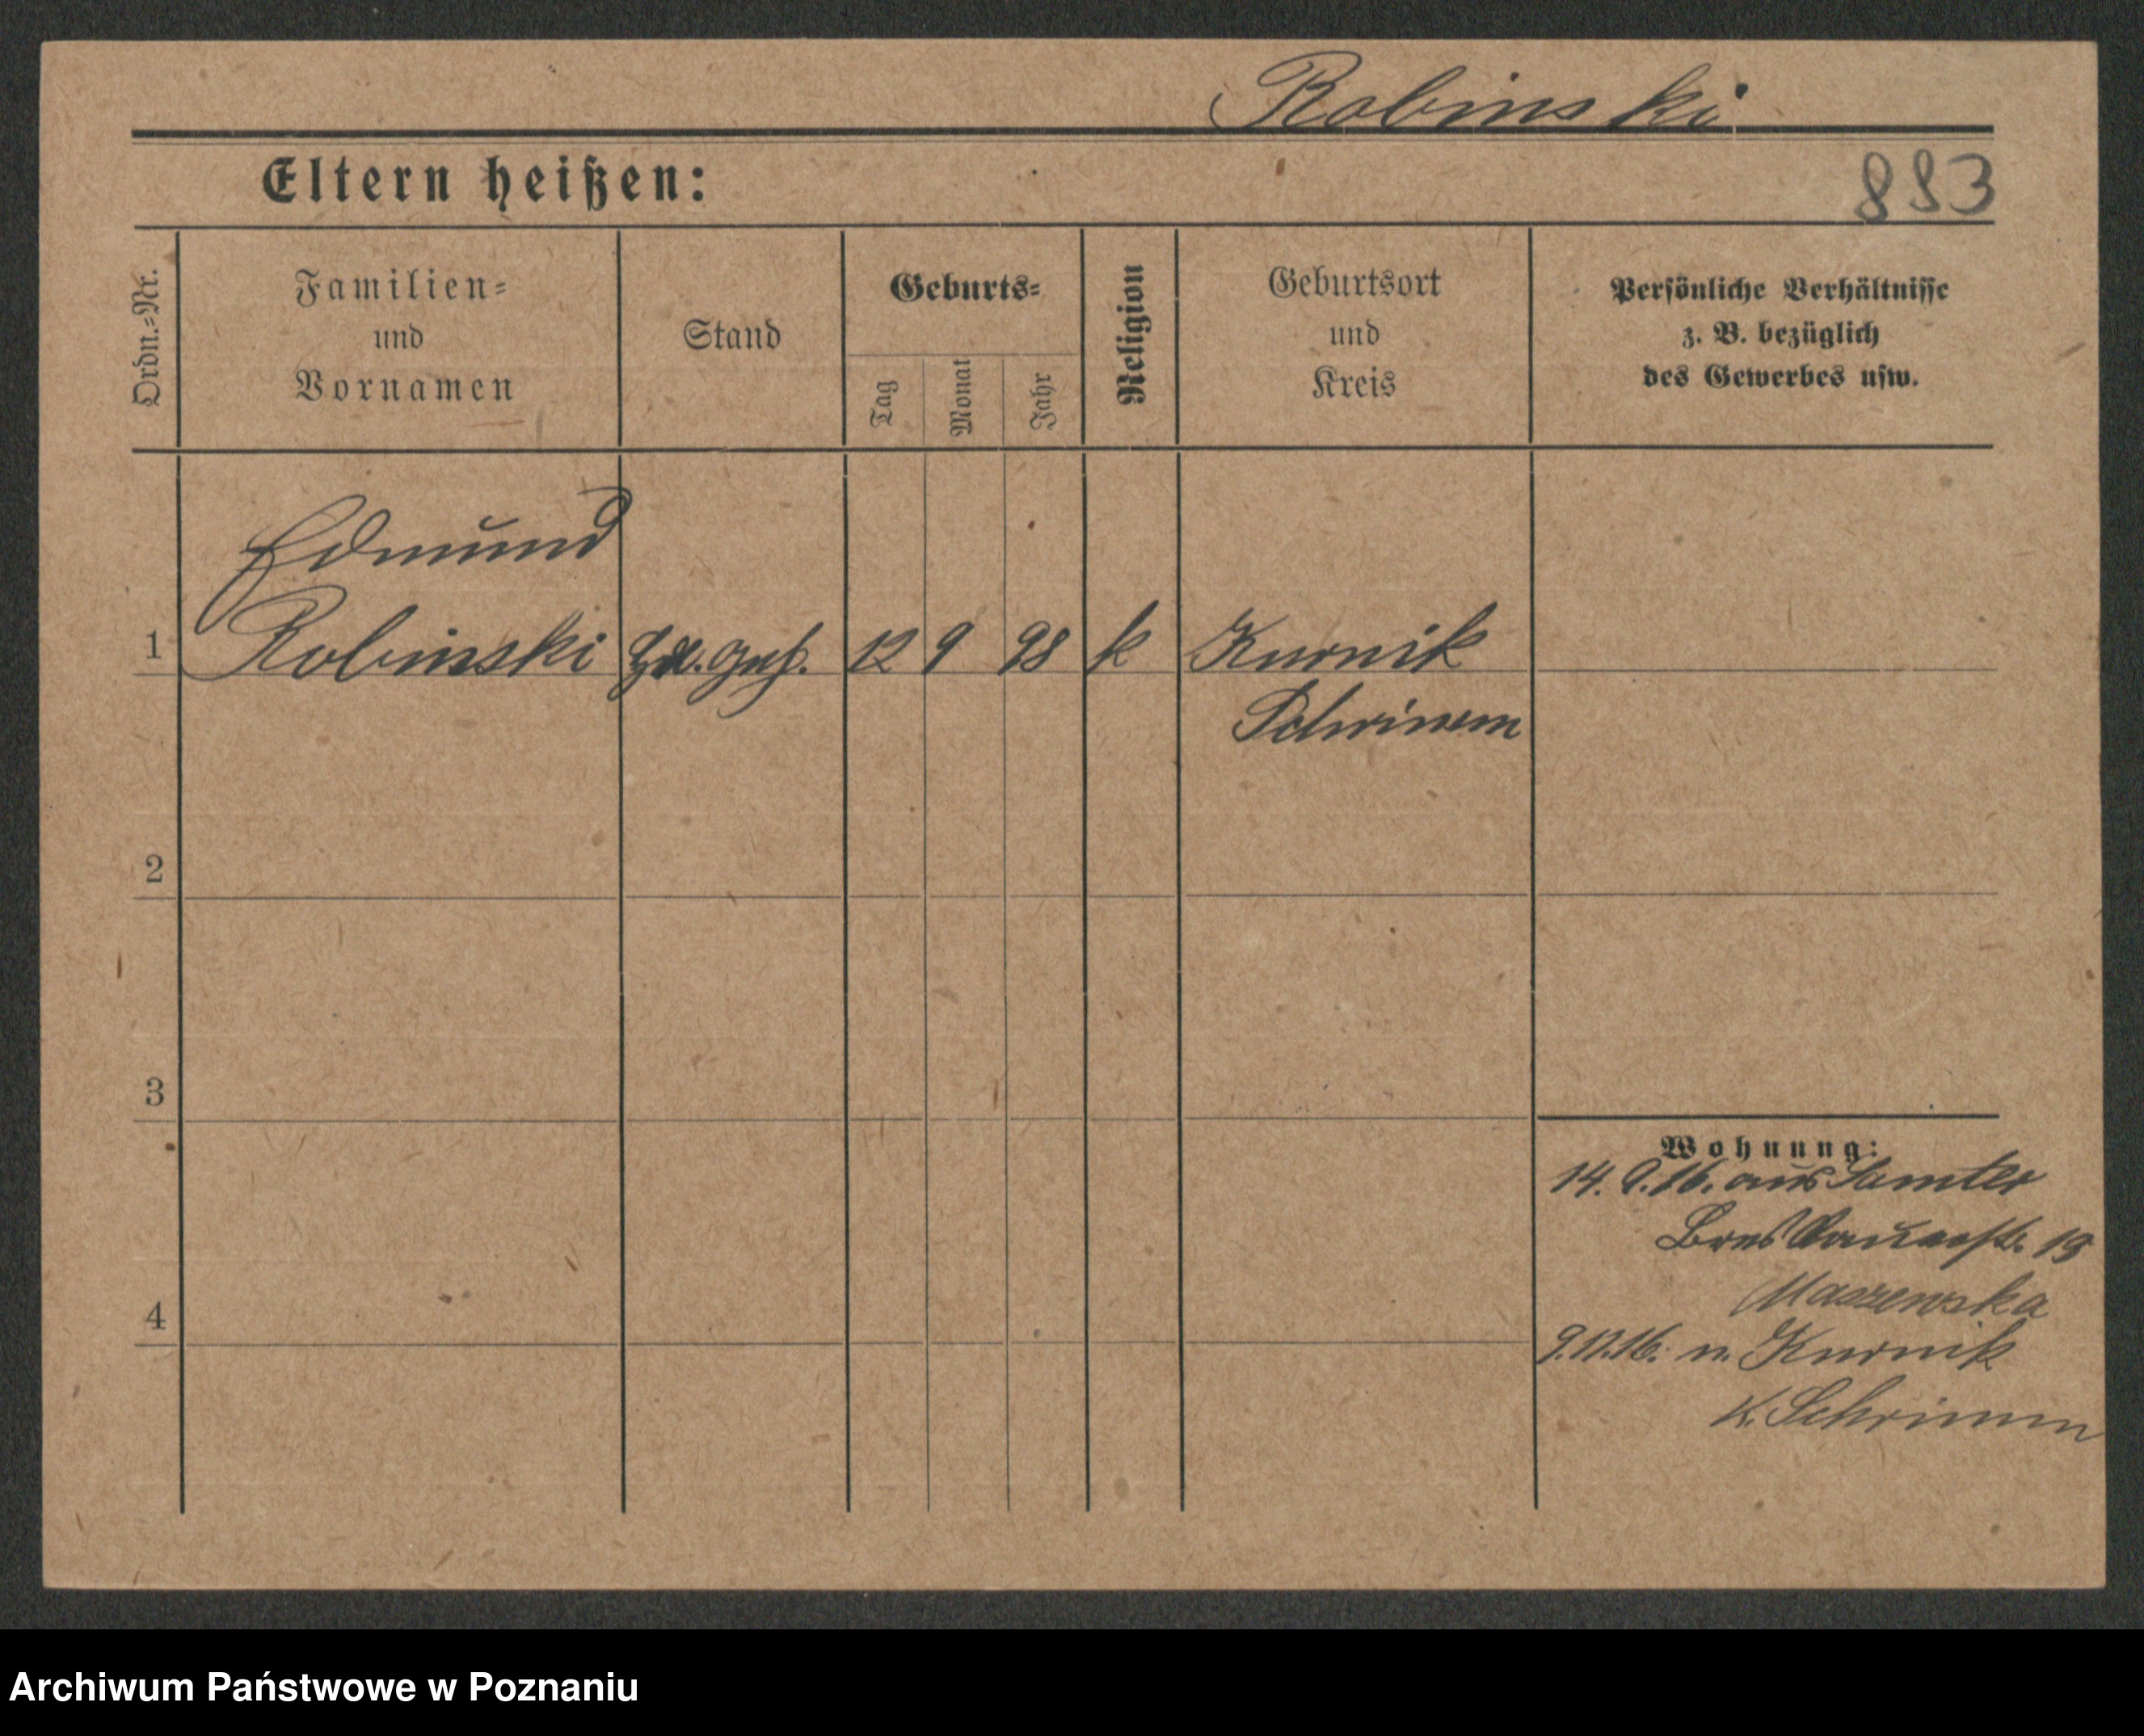 Robinski
Eltern heißen:
883
Ordn.=Nr.
Familien=
und
Vornamen
Stand
Geburts=
Tag
Monat
Jahr
Religion
Geburtsort
und
Kreis
Persönliche Verhältnisse
z. B. bezüglich
des Gewerbes usw.
Edmund
1 Robinski 12 9 98 k Kurnik
Schrimm
2
3
Wohnung:
14. 9. 16. aus Samter
Breslauerstr. 19
Maszewska
4
9.11.16. n. Kurnik
K. Schrimm
Archiwum Państwowe w Poznaniu